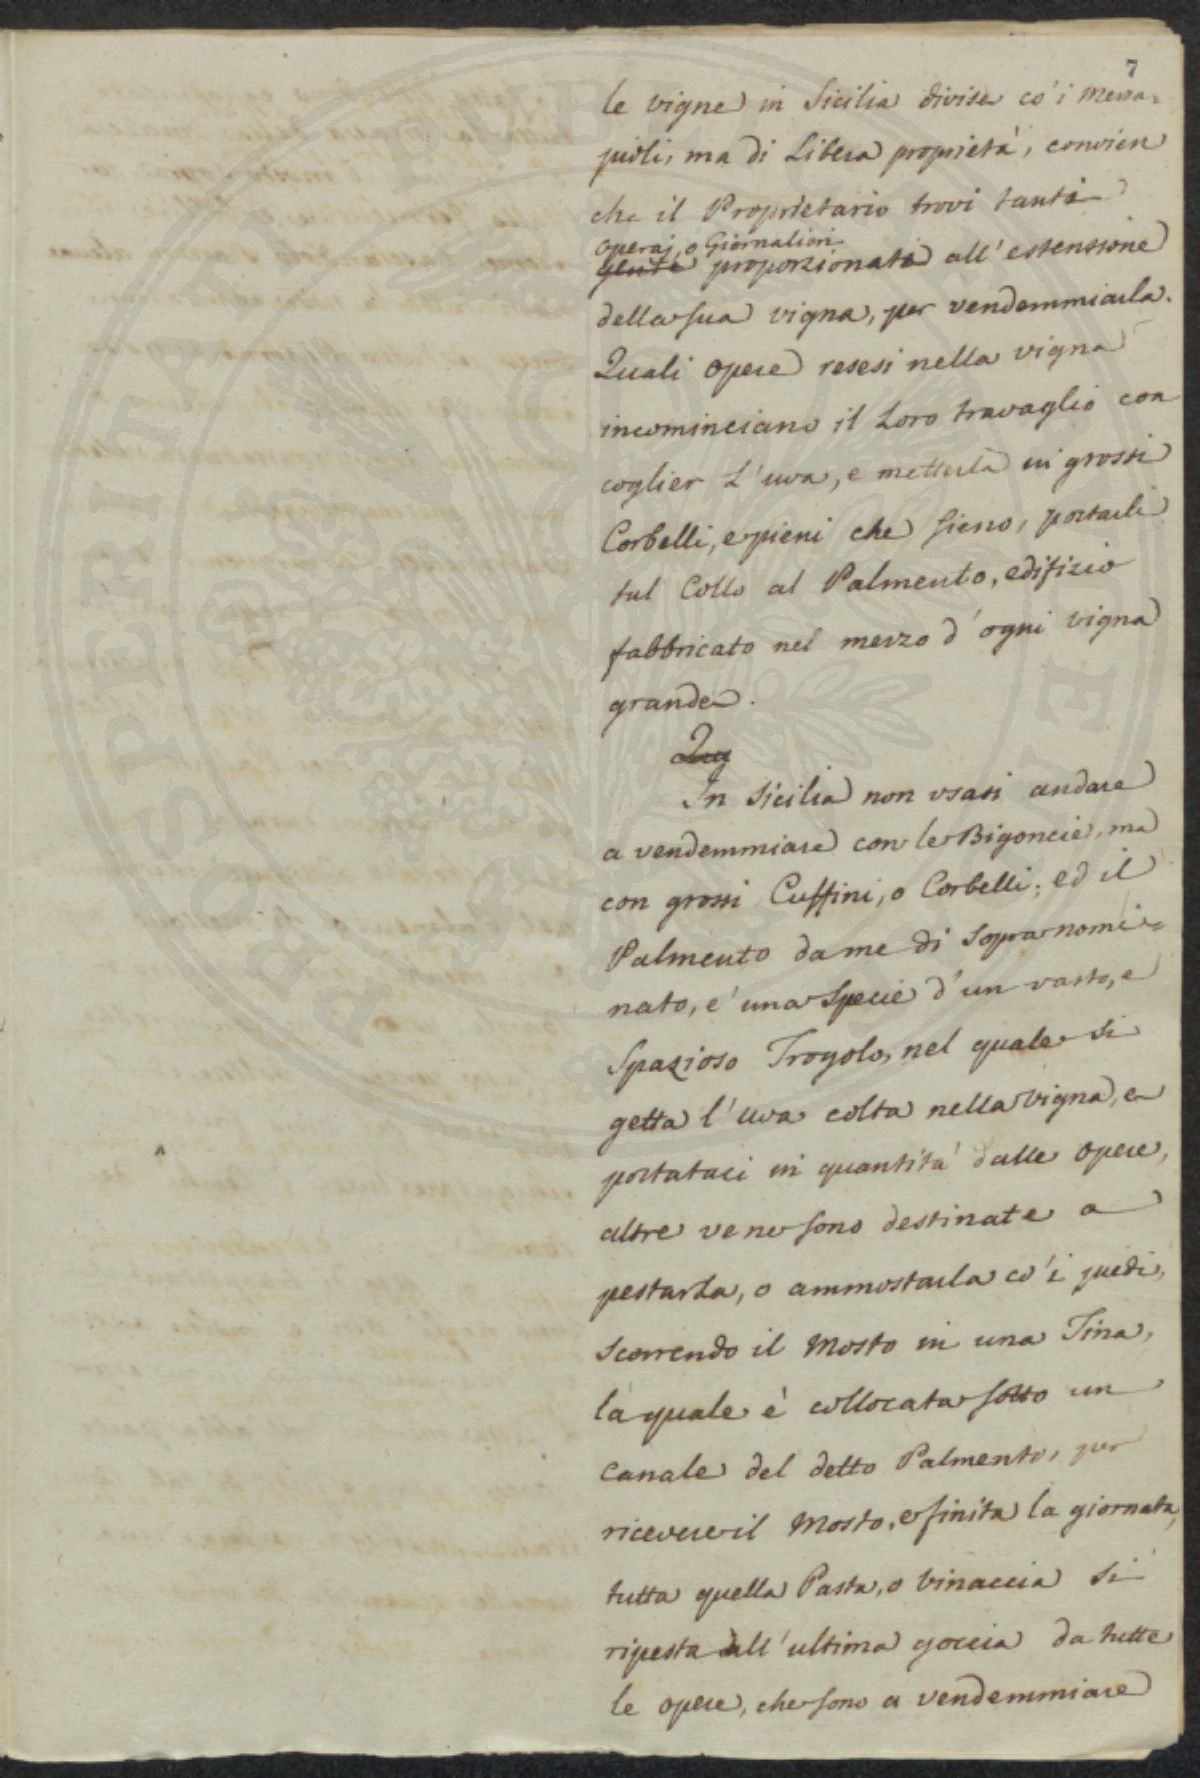 7
le vigne in Sicilia divise co' i Mezza=
juoli, ma di Libera proprietà, convien
che il Proprietario trovi tanti
operaj, o Giornalieri
gente proporzionati all'estensione
della sua vigna, per vendemmiarla.
Quali opere resesi nella vigna
incominciano il Loro travaglio con
coglier L'uva, e metterla in grossi
Corbelli, e pieni che sieno, portarli
sul Collo al Palmento, edifizio
fabbricato nel mezzo d'ogni vigna
grande.
In Sicilia non usasi andare
a vendemmiare con le Bigoncie, ma
con grossi Cuffini, o Corbelli; ed il
Palmento da me di Sopranomi=
nato, e' una Specie d'un vasto, e
Spazioso Trogolo, nel quale si
getta l'uva colta nella vigna, e
portataci in quantita' dalle opere,
altre ve ne sono destinate a
pestarla, o ammostarla co' i piedi,
scorrendo il Mosto in una Tina,
la quale è collocata sotto un
Canale del detto Palmento, per
ricevere il Mosto, e finita la giornata,
tutta quella Pasta, o vinaccia si
ripesta all'ultima goccia da tutte
le opere, che sono a vendemmiare